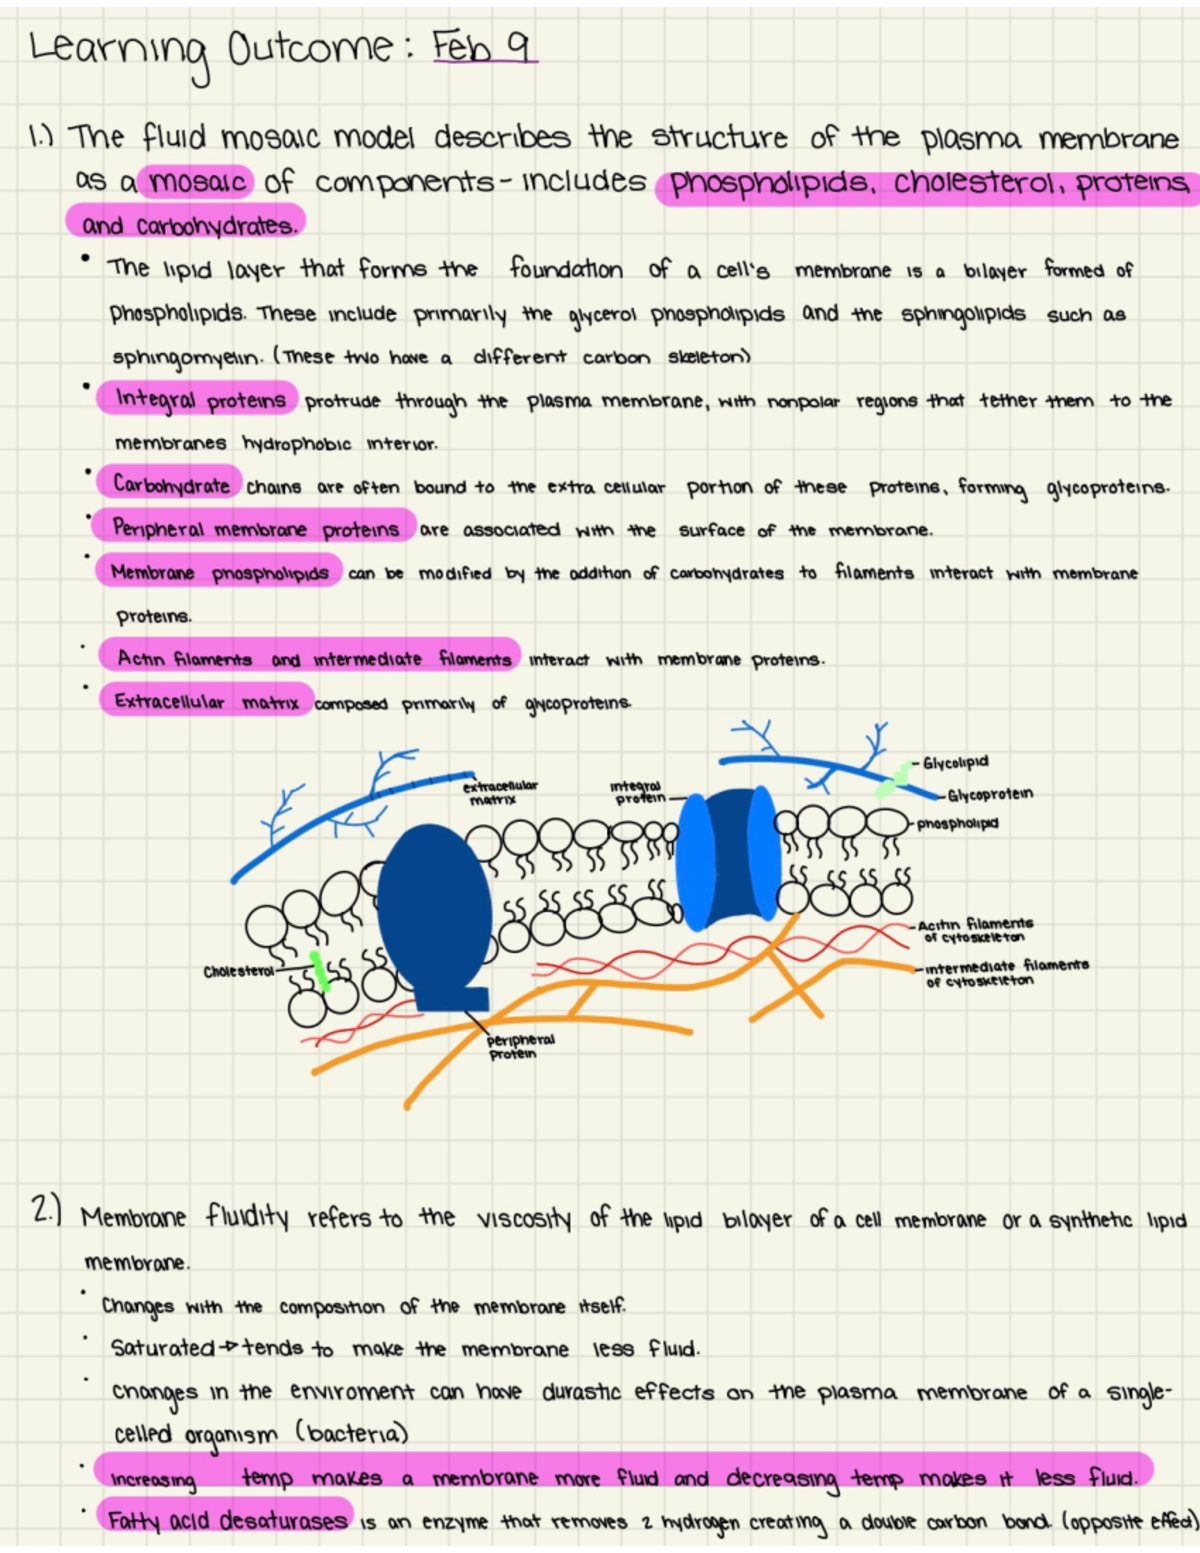 Learning Outcome: Feb 9
1.) The fluid mosaic model describes the structure of the plasma membrane
as a mosaic of components - includes phospholipids, cholesterol, proteins,
and carbohydrates.
• The lipid layer that forms the foundation of a cell's membrane is a bilayer formed of
phospholipids. These include primarily the glycerol phospholipids and the sphingolipids such as
sphingomyelin. (These two have a different carbon skeleton)
• Integral proteins protrude through the plasma membrane, with nonpolar regions that tether them to the
membranes hydrophobic interior.
• Carbohydrate chains are often bound to the extra cellular portion of these proteins, forming glycoproteins.
• Peripheral membrane proteins are associated with the surface of the membrane.
• Membrane phospholipids can be modified by the addition of carbohydrates to filaments interact with membrane
proteins.
• Actin filaments and intermediate filaments interact with membrane proteins.
• Extracellular matrix composed primarily of glycoproteins.
Glycolipid
extracellular
matrix
integral
protein
Glycoprotein
phospholipid
Acitin filaments
of cytoskeleton
Cholesterol
intermediate filaments
of cytoskeleton
peripheral
protein
2.) Membrane fluidity refers to the viscosity of the lipid bilayer of a cell membrane or a synthetic lipid
membrane.
• Changes with the composition of the membrane itself.
• Saturated → tends to make the membrane less fluid.
• Changes in the enviroment can have durastic effects on the plasma membrane of a single-
celled organism (bacteria)
• Increasing temp makes a membrane more fluid and decreasing temp makes it less fluid.
• Fatty acid desaturases is an enzyme that removes 2 hydrogen creating a double carbon bond. (opposite effect)